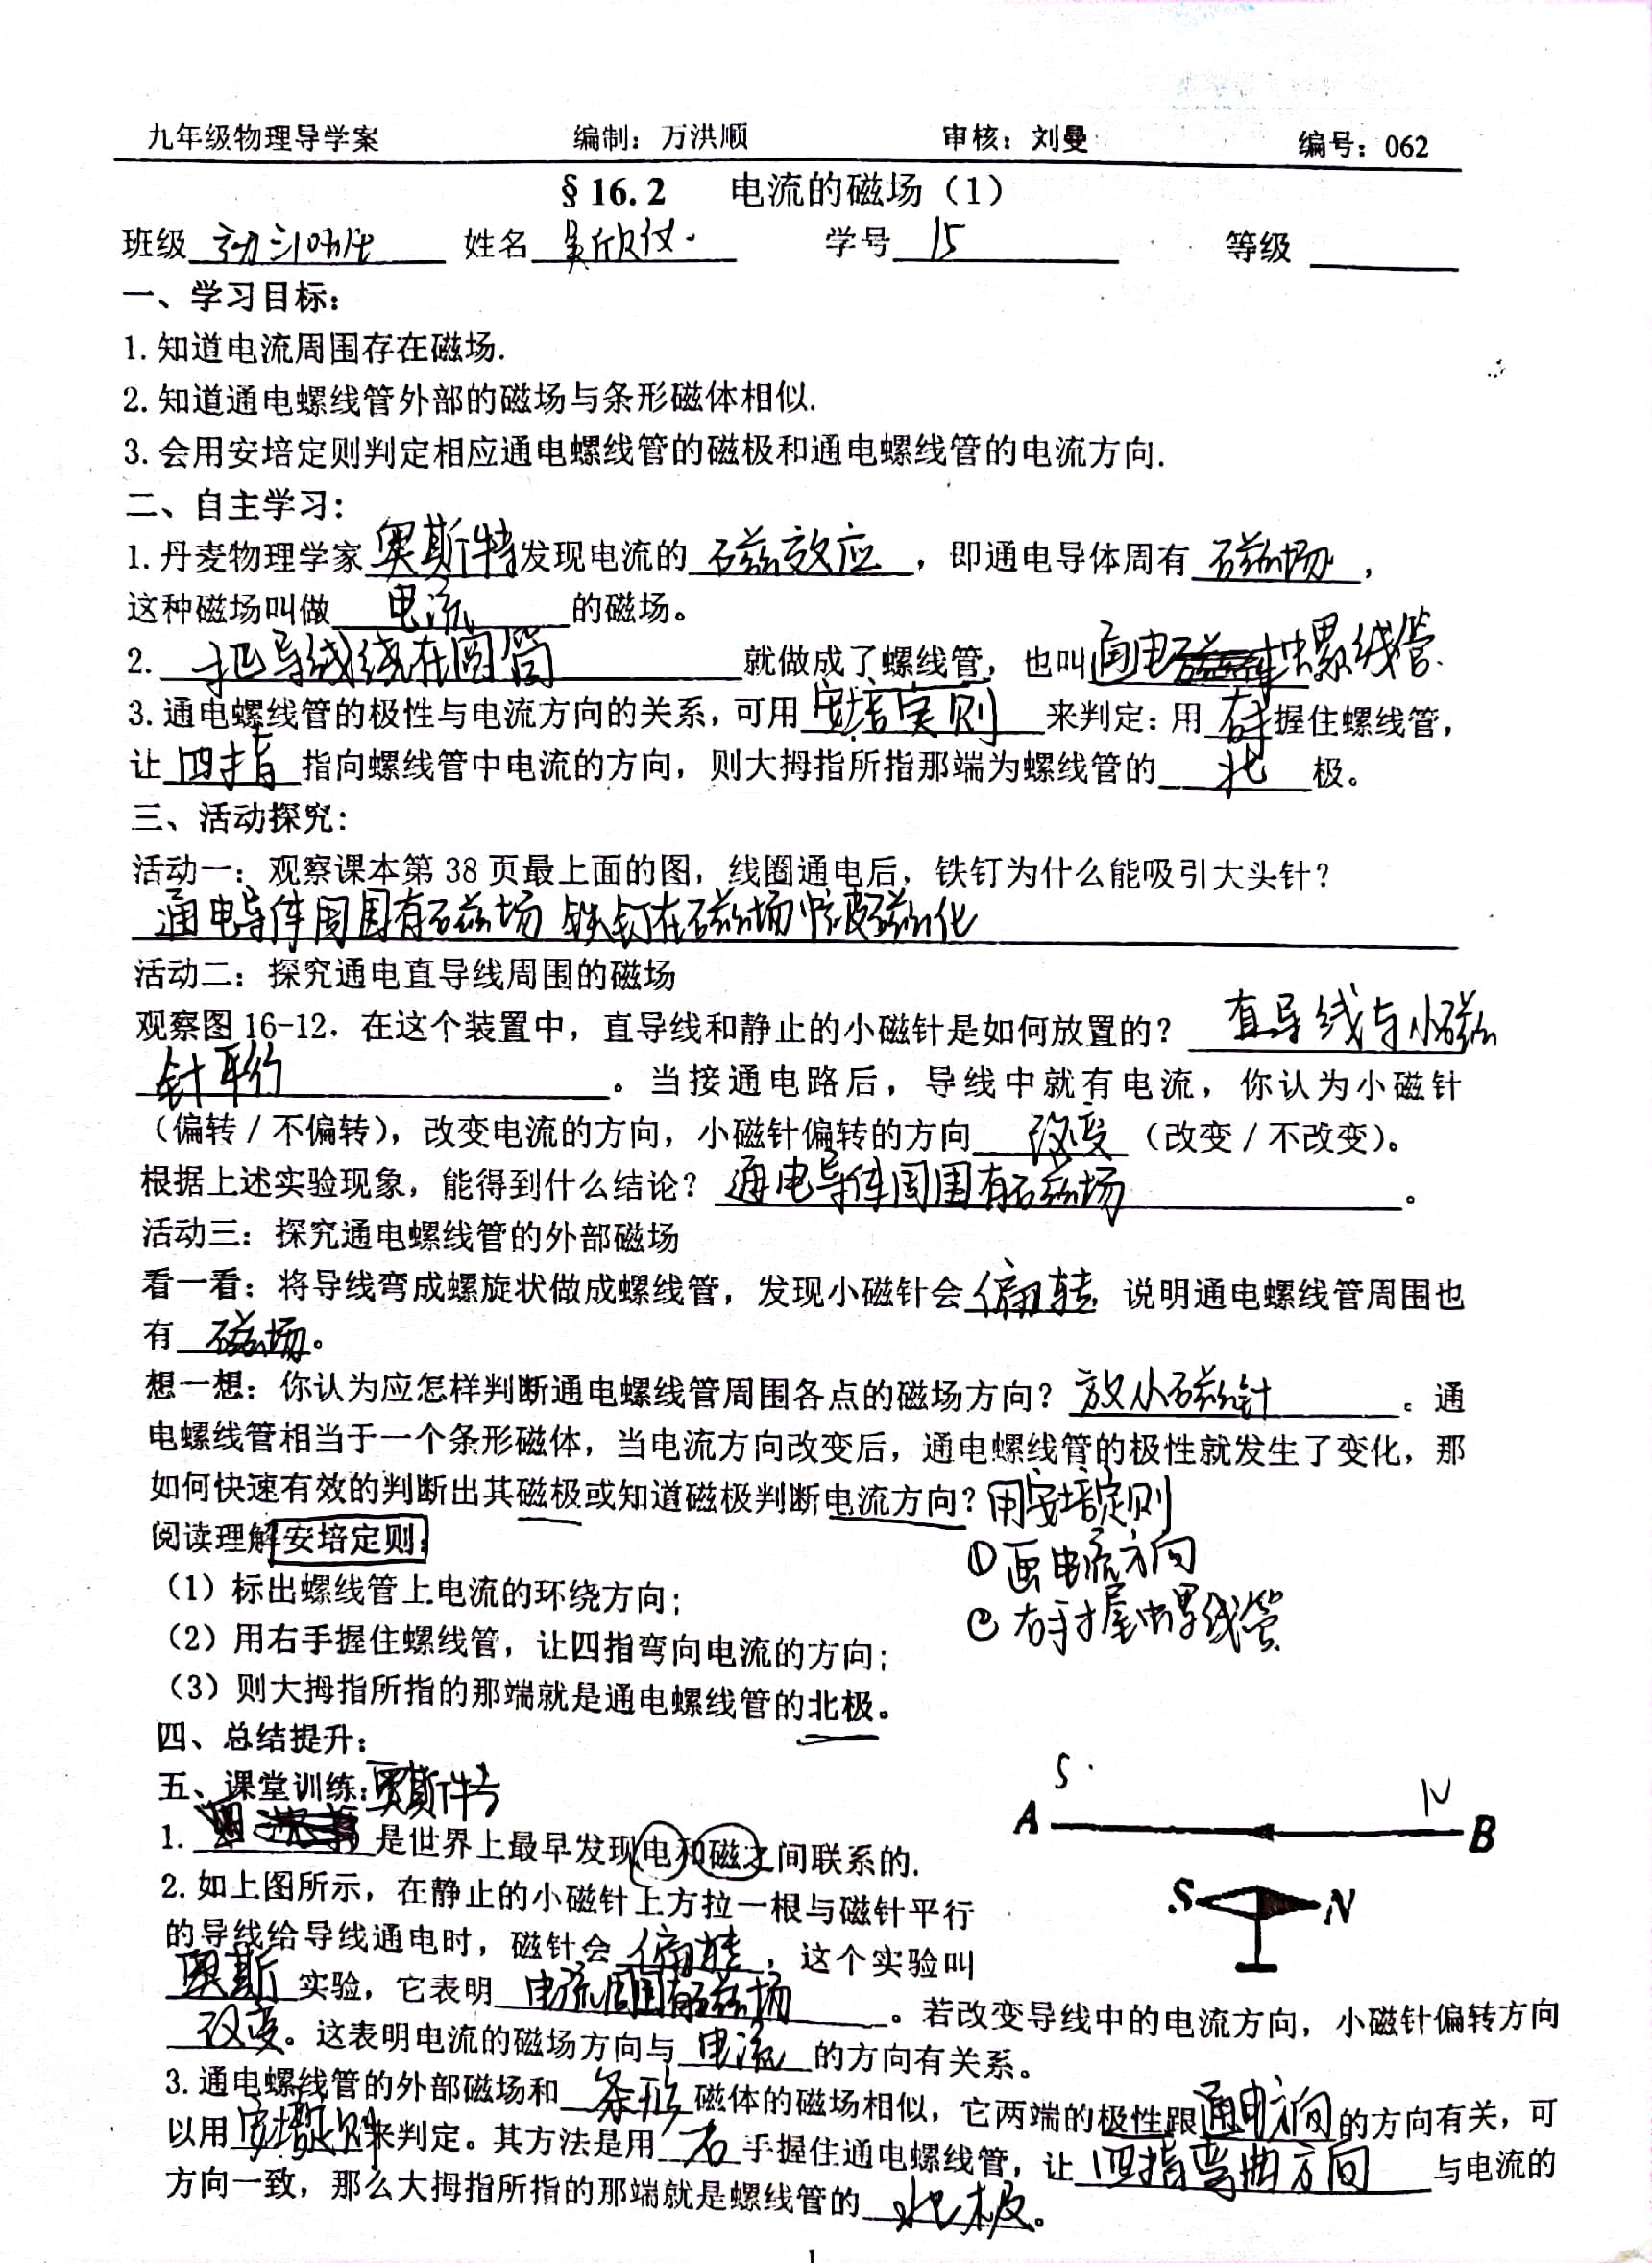 九年级物理导学案 编制：万洪顺 审核：刘曼 编号：062
§16.2 电流的磁场（1）
班级 姓名 吴欣仪 学号 15 等级
一、学习目标：
1.知道电流周围存在磁场.
2.知道通电螺线管外部的磁场与条形磁体相似.
3.会用安培定则判定相应通电螺线管的磁极和通电螺线管的电流方向.
二、自主学习：
1.丹麦物理学家奥斯特发现电流的 磁效应 ，即通电导体周有 磁场 ，
这种磁场叫做 电流 的磁场。
2. 把导线绕在圆筒 就做成了螺线管，也叫通电螺线管.
3.通电螺线管的极性与电流方向的关系，可用 安培定则 来判定：用 右手 握住螺线管，
让 四指 指向螺线管中电流的方向，则大拇指所指那端为螺线管的 北 极。
三、活动探究：
活动一：观察课本第 38 页最上面的图，线圈通电后，铁钉为什么能吸引大头针？
通电导体周围有磁场 铁钉在磁场 被磁化
活动二：探究通电直导线周围的磁场
观察图 16-12．在这个装置中，直导线和静止的小磁针是如何放置的？ 直导线与小磁
针平行 。当接通电路后，导线中就有电流，你认为小磁针
（偏转 / 不偏转），改变电流的方向，小磁针偏转的方向 改变 （改变 / 不改变）。
根据上述实验现象，能得到什么结论？ 通电导体周围有磁场 。
活动三：探究通电螺线管的外部磁场
看一看：将导线弯成螺旋状做成螺线管，发现小磁针会 偏转 说明通电螺线管周围也
有 磁场。
想一想：你认为应怎样判断通电螺线管周围各点的磁场方向？ 放小磁针 。通
电螺线管相当于一个条形磁体，当电流方向改变后，通电螺线管的极性就发生了变化，那
如何快速有效的判断出其磁极或知道磁极判断电流方向？用安培定则
阅读理解安培定则：
①画电流方向
（1）标出螺线管上电流的环绕方向；
②右手握螺线管
（2）用右手握住螺线管，让四指弯向电流的方向；
（3）则大拇指所指的那端就是通电螺线管的北极。
四、总结提升：
S N
五、课堂训练：奥斯特
A B
1. 是世界上最早发现电和磁之间联系的.
2.如上图所示，在静止的小磁针上方拉一根与磁针平行
S N
的导线给导线通电时，磁针会 偏转 ，这个实验叫
奥斯 实验，它表明 电流周围有磁场 。若改变导线中的电流方向，小磁针偏转方向
改变。这表明电流的磁场方向与 电流 的方向有关系。
3.通电螺线管的外部磁场和 条形 磁体的磁场相似，它两端的极性跟通电方向的方向有关，可
以用安培定则来判定。其方法是用 右 手握住通电螺线管，让 四指弯曲方向 与电流的
方向一致，那么大拇指所指的那端就是螺线管的 北极。
1